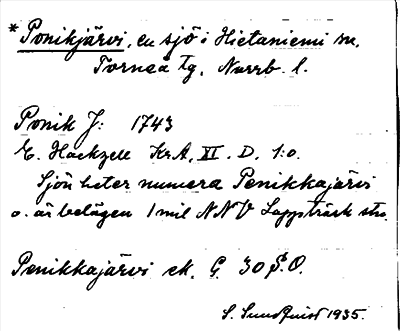 *Ponikjärvi, en sjö i Hietaniemi sn,
Torneå tg, Norrb. l.
Ponik J: 1743
E. Hackzell Kr.A. XI. D. 1:o.
Sjön heter numera Penikkajärvi
o. är belägen 1 mil NNV Lappträsk stn.
Penikkajärvi ek. G. 30 S.O.
S. Sundquist 1935.